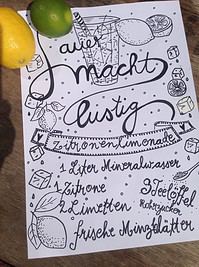 sauer
macht
lustig
Zitronenlimonade
1 Liter Mineralwasser
1 Zitrone
3 Teelöffel
Rohrzucker
2 Limetten
frische Minzblätter